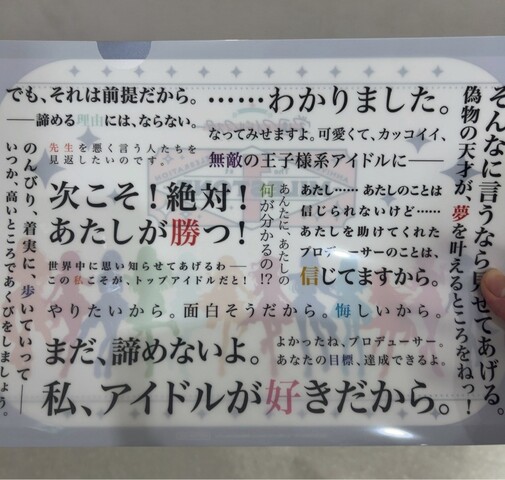 そんなに言うなら見せてあげる。
偽物の天才が、夢を叶えるところをねっ！
でも、それは前提だから。
——諦める理由には、ならない。
……わかりました。
なってみせますよ。可愛くて、カッコイイ、
無敵の王子様系アイドルに——
先生を悪く言う人たちを
見返したいのです。
次こそ！絶対！
あたしが勝つ！
あんたに、あたしの
何が分かるの！？
あたし……あたしのことは
信じられないけど……
あたしを助けてくれた
プロデューサーのことは、
信じてますから。
世界中に思い知らせてあげるわ——
この私こそが、トップアイドルだと！
のんびり、着実に、歩いていって——
いつか、高いところであくびをしましょう。
やりたいから。面白そうだから。悔しいから。
まだ、諦めないよ。
よかったね、プロデューサー。
あなたの目標、達成できるよ。
私、アイドルが好きだから。